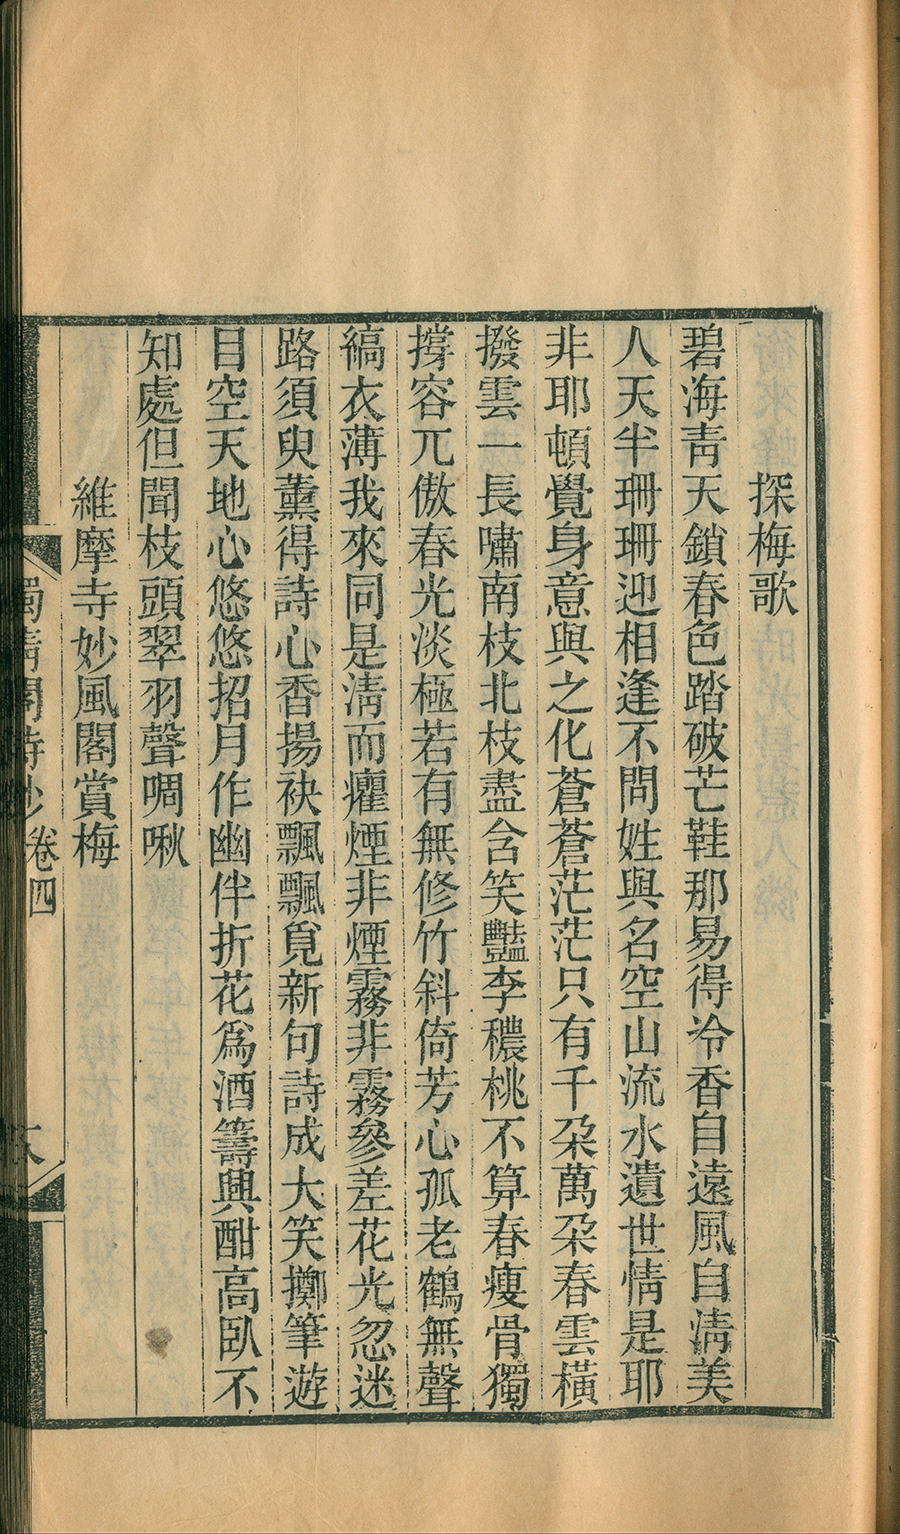 探梅歌
碧海靑天鎖春色踏破芒鞋那易得冷香自遠風自淸美
人天半珊珊迎相逢不問姓與名空山流水遺世情是耶
非耶頓覺身意與之化蒼蒼茫茫只有千朶萬朶春雲橫
撥雲一長嘯南枝北枝盡含笑豔李穠桃不算春瘦骨獨
撐容兀傲春光淡極若有無修竹斜倚芳心孤老鶴無聲
縞衣薄我來同是淸而癯煙非煙霧非霧參差花光忽迷
路須臾薰得詩心香揚袂飄飄覓新句詩成大笑擲筆遊
目空天地心悠悠招月作幽伴折花爲酒籌興酣高臥不
知處但聞枝頭翠羽聲啁啾
維摩寺妙風閣賞梅
獨淸閣詩鈔卷四